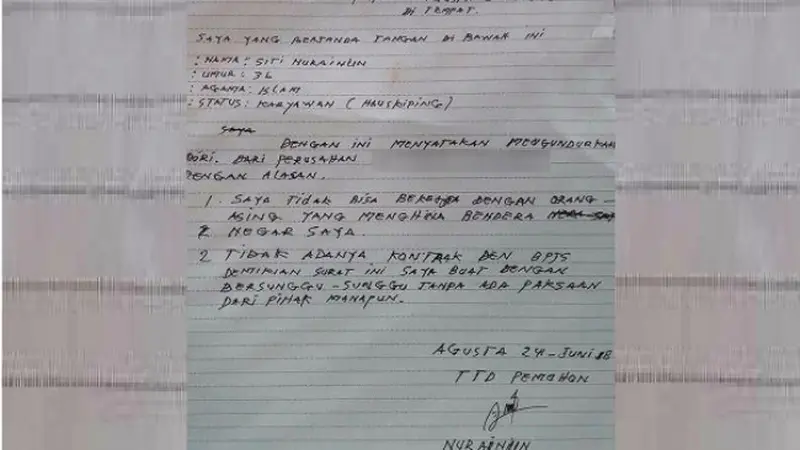 DI TEMPAT.
SAYA YANG BERTANDA TANGAN DI BAWAH INI
: NAMA : SITI NURAINUN
: UMUR : 36
: AGAMA : ISLAM
: STATUS : KARYAWAN ( HAUSKIPING )
saya
DENGAN INI MENYATAKAN MENGUNDURKAN
DIRI. DARI PERUSAHAN
DENGAN ALASAN.
1. SAYA TIDAK BISA BEKERJA DENGAN ORANG-
ASING YANG MENGHINA BENDERA
NEGAR SAYA.
2 TIDAK ADANYA KONTRAK DEN BPJS
DEMIKIAN SURAT INI SAYA BUAT DENGAN
BERSUNGGU-SUNGGU TANPA ADA PAKSAAN
DARI PIHAK MANAPUN.
AGUSTA 24-JUNI 18
TTD PEMOHON
NURAINUN